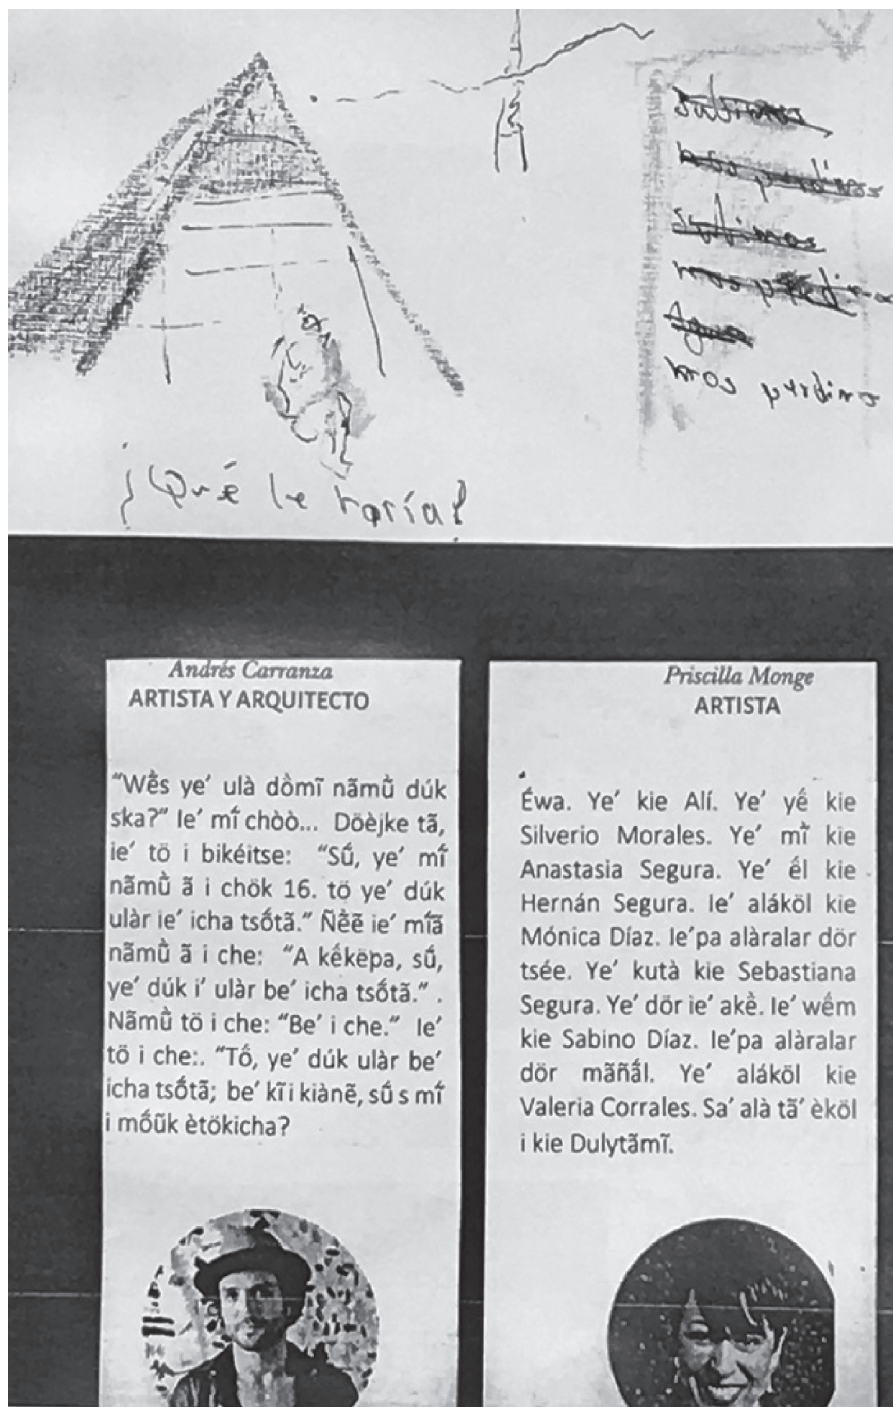 Subimos
nos perdimos
subimos
nos perdimos
Agua
nos perdimo
¿Qué le haría?
Andrés Carranza
ARTISTA Y ARQUITECTO
“Wè̃s ye’ ulà dö̀mĩ nãmù̃ dúk
ska?” Ie’ mĩ́ chòò... Döèjke tã,
ie’ tö i bikéitse: “Sṹ, ye’ mĩ́
nãmù̃ ã i chök 16. tö ye’ dúk
ulàr ie’ icha tsṍtã.” Ñè̃ẽ ie’ mĩ́ã
nãmù̃ ã i che: “A kë́këpa, sṹ,
ye’ dúk i’ ulàr be’ icha tsṍtã.” .
Nãmù̃ tö i che: “Be’ i che.” Ie’
tö i che:. “Tö́, ye’ dúk ulàr be’
icha tsṍtã; be’ kĩ i kiànẽ, sṹ s mĩ́
i mṍũk ètökicha?
Priscilla Monge
ARTISTA
Éwa. Ye’ kie Alí. Ye’ yḗ kie
Silverio Morales. Ye’ mĩ̀ kie
Anastasia Segura. Ye’ ḗl kie
Hernán Segura. Ie’ aláköl kie
Mónica Díaz. Ie’pa alàralar dör
tsée. Ye’ kutà kie Sebastiana
Segura. Ye’ dör ie’ akè̃. Ie’ wḗm
kie Sabino Díaz. Ie’pa alàralar
dör mãñã́l. Ye’ aláköl kie
Valeria Corrales. Sa’ alà tã’ èköl
i kie Dulytãmĩ.